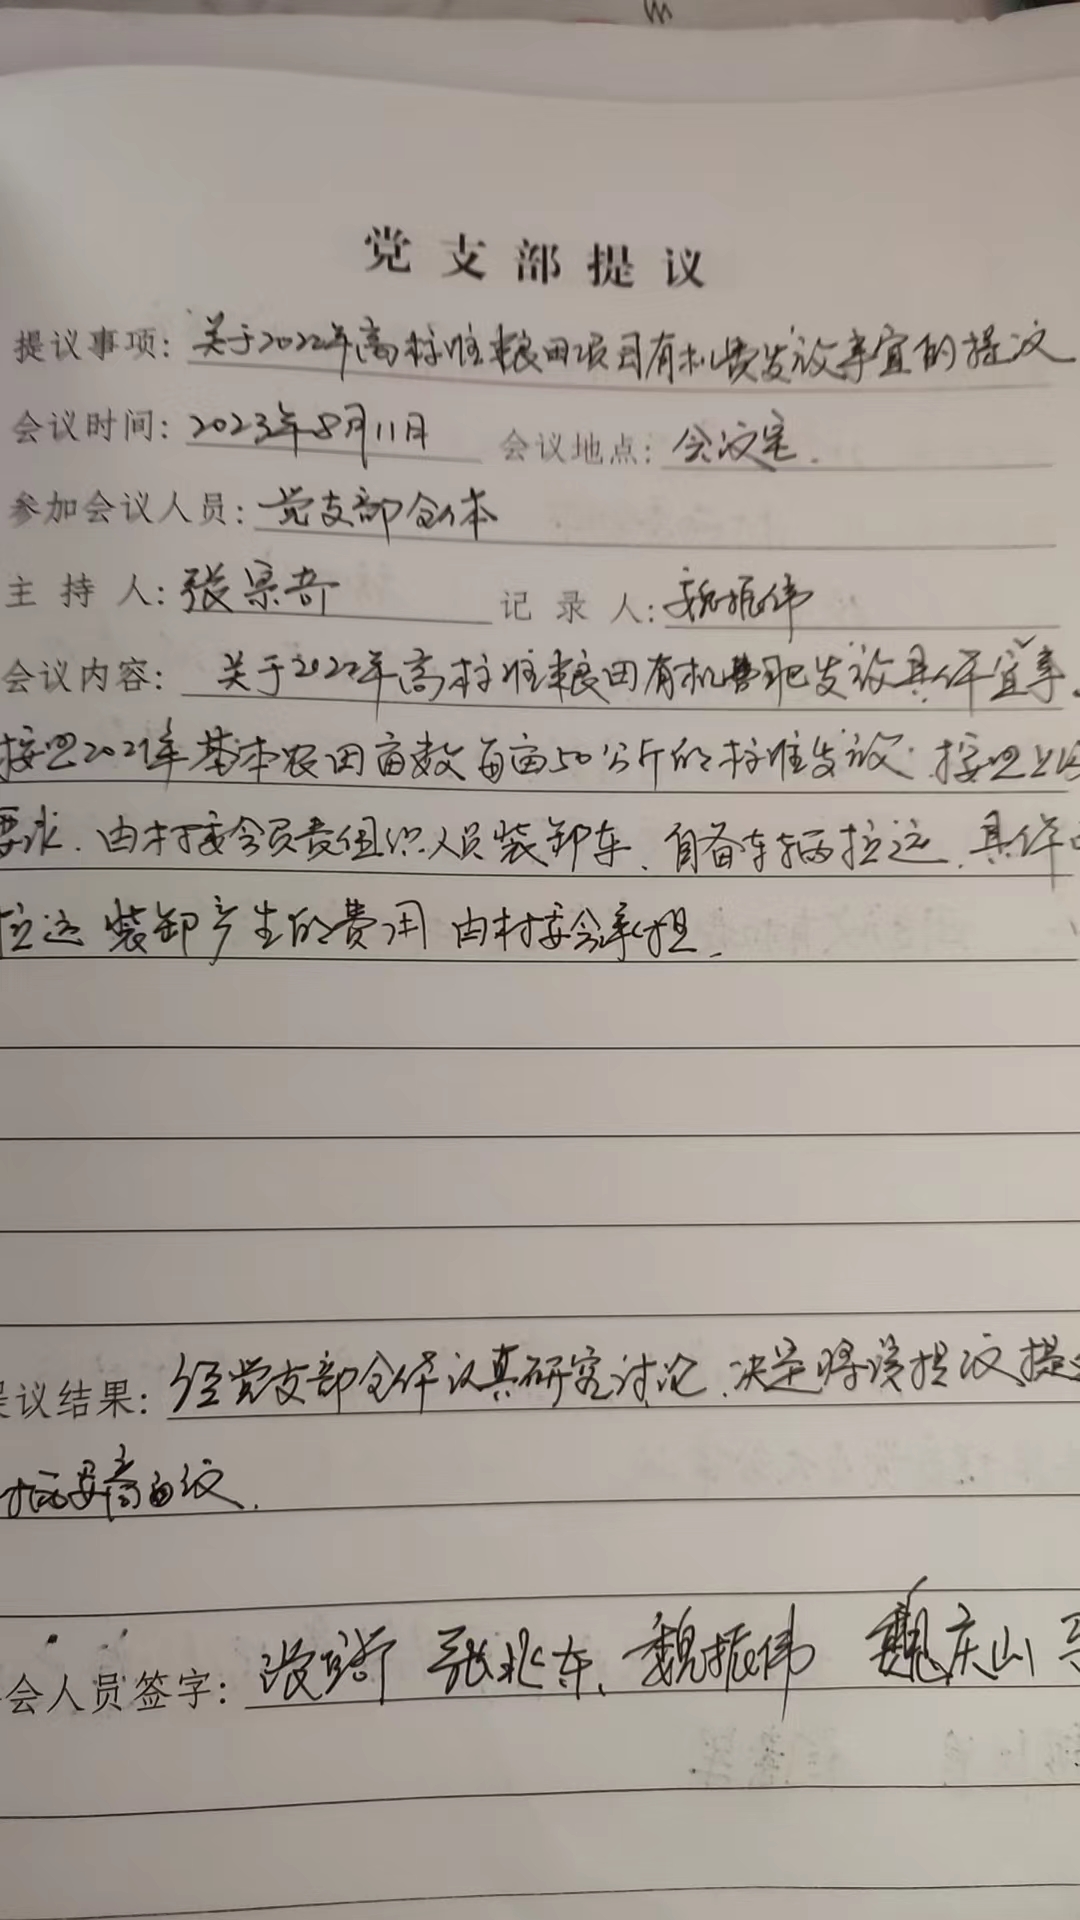 党支部提议
提议事项: 关于2022年高标准粮田项目有机费发放事宜的提议
会议时间: 2023年8月11日 会议地点: 会议室.
参加会议人员: 党支部全体
主 持 人: 张宗奇 记 录 人: 魏振伟
会议内容: 关于2022年高标准粮田有机肥发放具体宜事.
按照2021年基本农田亩数每亩50公斤的标准发放. 按照上级
要求. 由村委会负责组织人员装卸车、自备车辆拉运. 具体
拉运 装卸产生的费用 由村委会承担.
议结果: 经党支部全体认真研究讨论. 决定将该提议提
会人员签字: 张兆东. 魏振伟 魏庆山